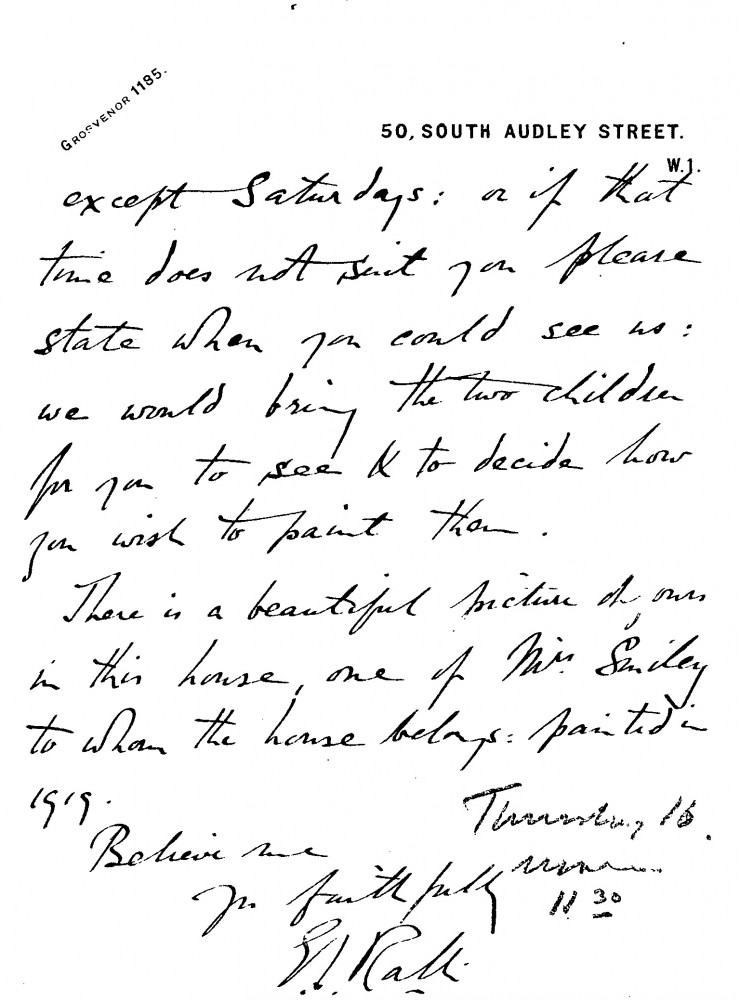 GROSVENOR 1185.
50, SOUTH AUDLEY STREET.
W.1.
except Saturdays: or if that
time does not suit you please
state when you could see us:
we would bring the two children
for you to see & to decide how
you wish to paint them.
There is a beautiful picture of yours
in this house, one of Mrs. Smiley
to whom the house belongs: painted in
1919.
Thursday 16.
Believe me
Yrs faithfully
11 30
Ralli